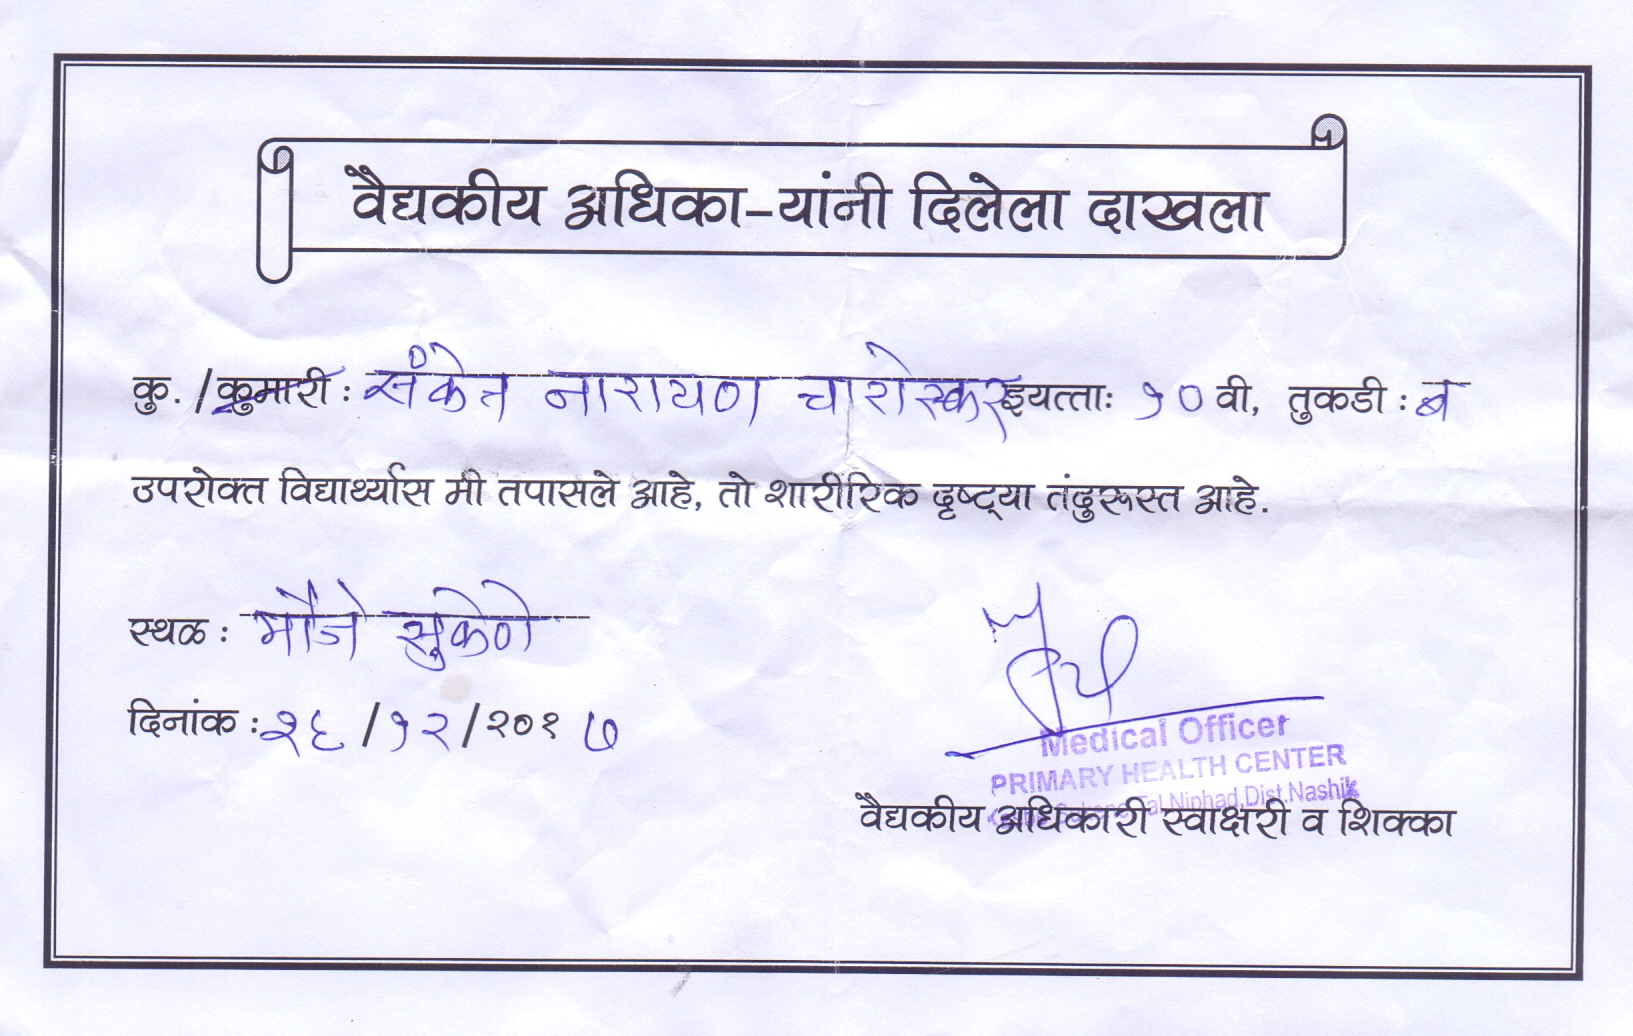 वैद्यकीय अधिका-यांनी दिलेला दाखला
कु. / कुमारी : संकेत नारायण चारोस्कर इयत्ता: १० वी, तुकडी : ब
उपरोक्त विद्यार्थ्यास मी तपासले आहे, तो शारीरिक दृष्ट्या तंदुरूस्त आहे.
स्थळ : मौजे सुकेणे
दिनांक : २६ / १२ / २०१७
Medical Officer
PRIMARY HEALTH CENTER
Tal.Niphad,Dist.Nashik
वैद्यकीय अधिकारी स्वाक्षरी व शिक्का